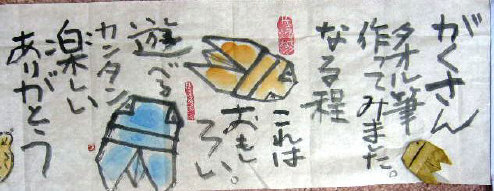 がくさん
タオル筆
作ってみました。
なる程
これは
おもしろい。
遊べる
カンタン
楽しい
ありがとう